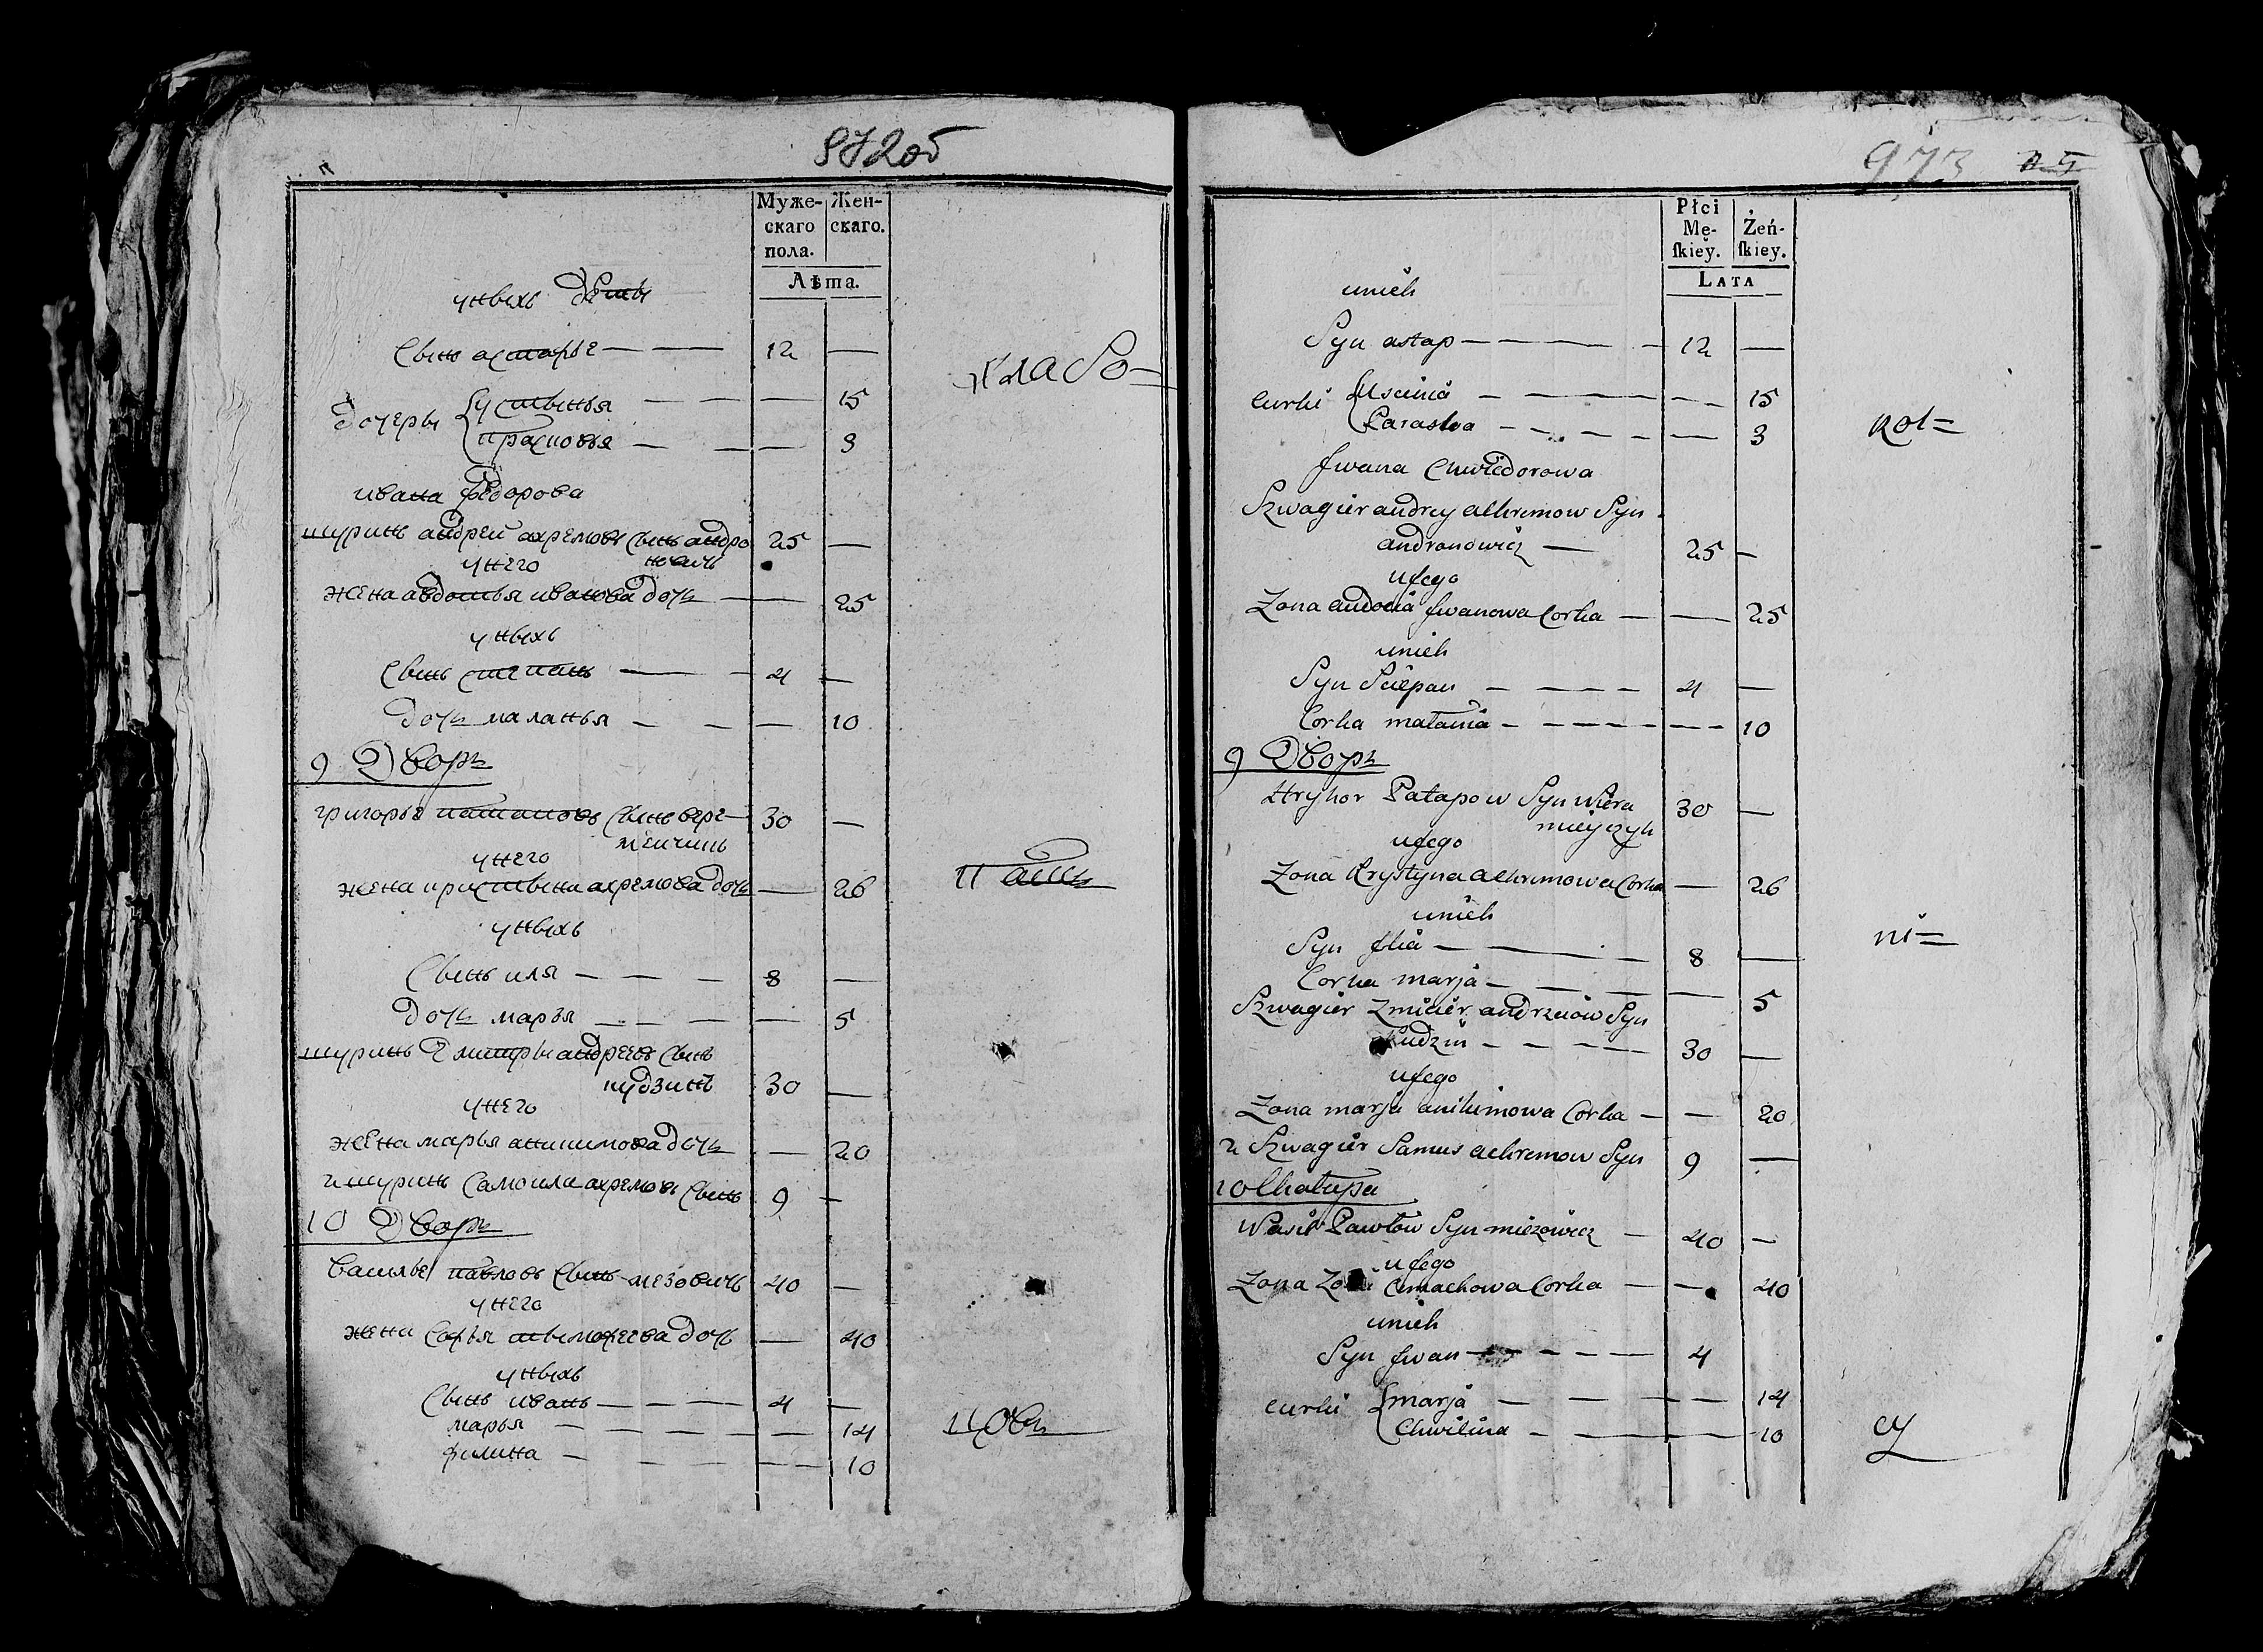 972об
Муже-
скаго
пола.
Жен-
скаго.
Лѣта.
унихъ дѣти
Сынъ астапъе — — 12 —
дочеры устинья — — — 15
прасковья — — — 3
ивана федорова
шуринъ андрей ахремовъ Сынъ андро 25 —
новичъ
унего
жена авдотья иванова дочь — — 25
унихъ
Сынъ степанъ — — 4 —
дочь маланья — — — 10
9 Дворъ
григорье патаповъ Сынъ вере- 30 —
мейчикъ
унего
жена кристына ахремова дочь — 26
унихъ
Сынъ иля — — — 8 —
дочь марья — — — — 5
шуринъ дмитры андреевъ Сынъ
кудзинъ 30 —
унего
жена марья аникимова дочь — 20
2 шуринъ Самоила ахремовъ Сынъ 9 —
10 Дворъ
Василье павловъ Сынъ мезовичъ 40 —
унего
жена Софья тимофеева дочь — 40
унихъ
Сынъ иванъ — — — 4 —
марья — — — — — 14
филина — — — — — 10
973
Płci
Mę-
ſkieỹ.
Żeń-
ſkiey.
LATA
unich
Syn astap — — — — 12 —
curki Uscinia — — — — — 15
Paraska — — — — — 3
Jwana Chwiedorowa
Szwagier andrey achremow Syn
andronowicz — 25 —
uJego
Zona audocia Jwanowa Corka — — 25
unich
Syn Sciepan — — — — 4 —
Corka małania — — — — — 10
9 Дворъ
Hryhor Patapow Syn Wiera 30 —
mieyczyk
uJego
Zona Krystyna achremowa Corka — 26
unich
Syn Jlia — — — 8 —
Corka marja — — — — 5
Szwagier Zmicier andrzeiow Syn
Kudzin — — — — 30 —
uJego
Zona marja anikimowa Corka — — 20
2 Szwagier Samus achremow Syn 9 —
10 Chatupa
Wasil Pawłow Syn miezowicz — 40 —
uJego
Zona Cimachowa Corka — — 40
unich
Syn Jwan — — — — 4
curki marja — — — — 14
Chwilina — — — — 10